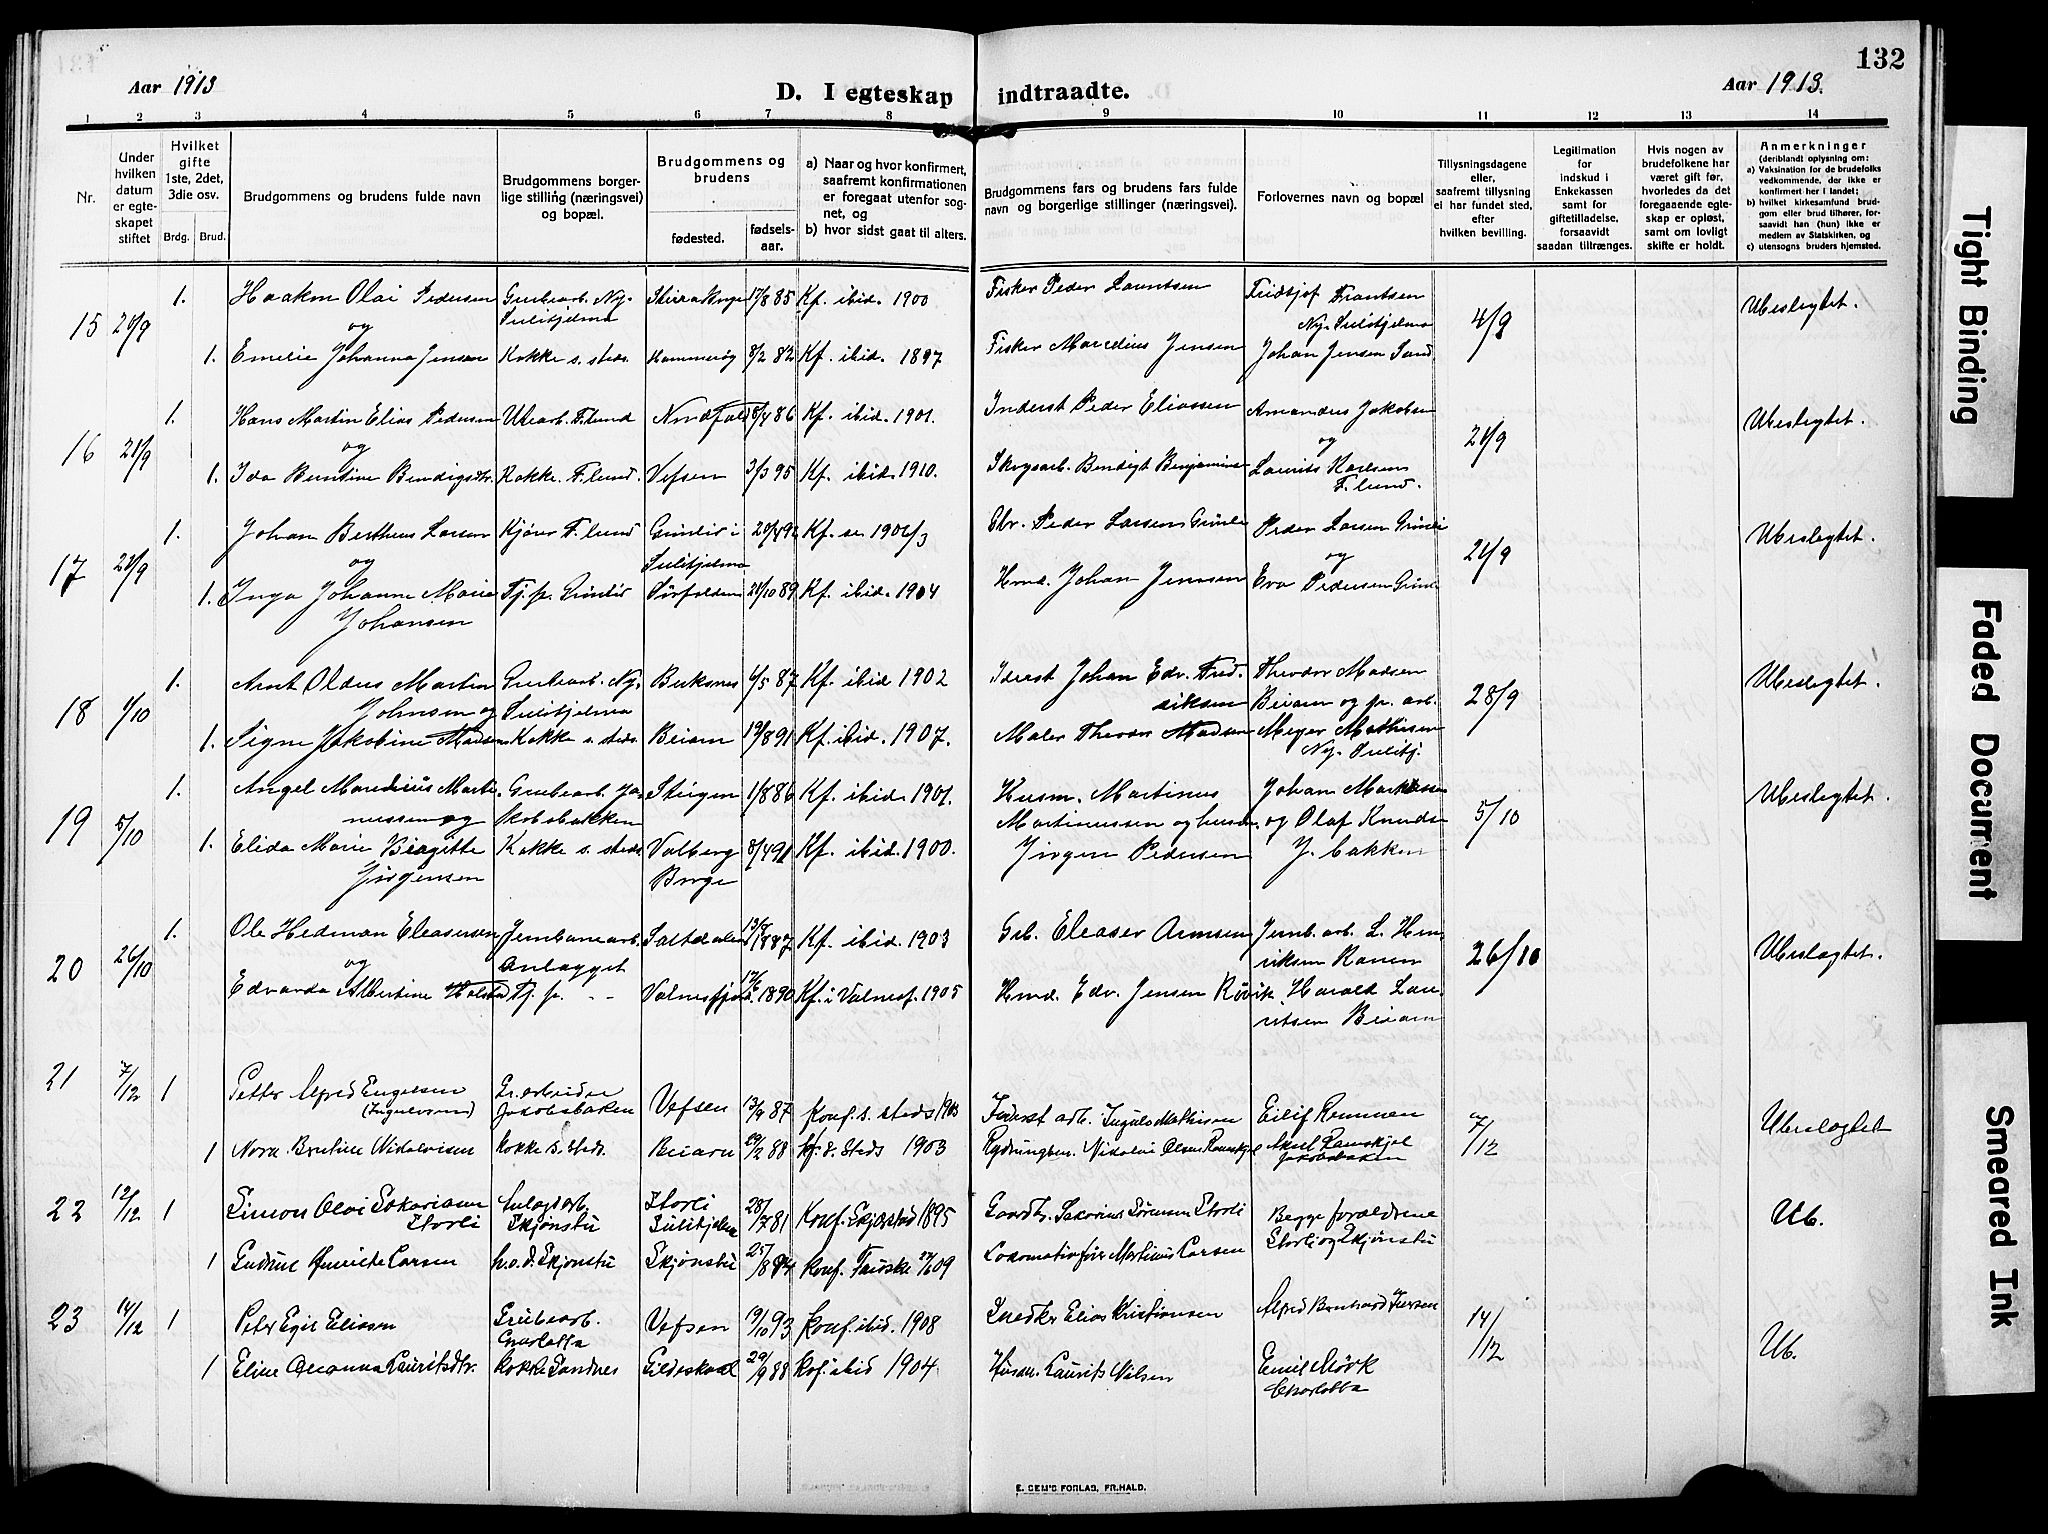 132
Aar 1913
D. I egteskap indtraadte.
Aar 1913.
1 2 3 4 5 6 7 8 9 10 11 12 13 14
Nr.
Under hvilken datum er egte-skapet stiftet
Hvilket gifte 1ste, 2det, 3die osv.
Brdg. Brud.
Brudgommens og brudens fulde navn
Brudgommens borger-lige stilling (næringsvei) og bopæl.
Brudgommens og brudens
fødested.
fødsels-aar.
a) Naar og hvor konfirmert, saafremt konfirmationen er foregaat utenfor sog-net, og
b) hvor sidst gaat til alters.
Brudgommens fars og brudens fars fulde navn og borgerlige stillinger (næringsvei).
Forlovernes navn og bopæl
Tillysningsdagene eller, saafremt tillysning ei har fundet sted, efter hvilken bevilling.
Legitimation for indskud i Enkekassen samt for giftetilladelse, forsaavidt saadan tiltrænges.
Hvis nogen av brudefolkene har været gift før, hvorledes da det foregaaende egte-skap er opløst, samt om lovligt skifte er holdt.
Anmerkninger
(deriblandt oplysning om:
a) Vaksination for de brudefolks vedkommende, der ikke er konfirmert her i landet;
b) hvilket kirkesamfund brud-gom eller brud tilhører, for-saavidt han (hun) ikke er medlem av Statskirken, og
c) utensogns bruders hjemsted.
15 21/9 1. Haakon Olai Pedersen Grubearb. Ny- 17/8 85 Kf. ibid. 1900 Fisker Peder Fridtjof Frantsen 4/9 Ubeslegtet.
og Sulitjelma Ny-Sulitjelma
1. Emelie Johanna Jensen Kokke s. steds. Hammerøy 8/2 82 Kf. ibid. 1897 Fisker Marcelius Jensen Johan Jensen Sand
16 21/9 1. Hans Martin Elias Pedersen F.lund Nordfold 8/4 86 Kf. ibid. 1901. Inderst Peder Eliassen Amandus Jakobsen 21/9 Ubeslegtet.
og og
1. Ida Bendigsdtr. Kokke. F.lund. Vefsen 3/3 95 Kf. ibid. 1910. Skogsarb. Bendigt Laurits Karlsen
F.lund.
17 21/9 1. Johan Bertheus Larsen Kjører F.lund i Peder Larsen 21/9 Ubeslegtet.
og Sulitjelma og
1. Inga Johanne Marie Tj. p. Sørfolden 21/10 89 Kf. ibid. 1904 Johan Jensen Eva Pedersen
Johansen
18 1/10 1. Arnt Oldus Martin Grubearb. Ny- 6/5 87 Kf. ibid 1902 Johan Edv. Fred- Theodor Madsen 28/9 Ubeslegtet.
Johnsen og Sulitjelma riksen Beiarn og gr. arb.
1. Signe Jakobine Madsen Kokke s. steds Beiarn 19/8 91 Kf. ibid. 1907. Maler Theodor Madsen Meyer Mathisen
Ny. Sulitj.
19 5/10 1. Angel Mandius Marti- Grubearb. Ja- Steigen 1/8 86 Kf. ibid. 1901. Husm. Martinus Johan 5/10 Ubeslegtet.
nussen og kobsbakken Martinussen og husm. og Olaf Knuds
1. Elida Marie Birgitte Kokke s. steds Valberg 8/4 91 Kf. ibid. 1900. Jørgen Pedersen J. bakken
Jørgensen Borge
20 26/10 1. Ole Hedman Eleasersen Jernbanearb. Saltdalen 1887 Kf. ibid. 1903 Grb. Eleaser Jernb. arb. L. Hen- 26/10 Ubeslegtet.
og Anlægget riksen Ranen
Edvarda Albertine Tj. p. Valnesfjord 1890 Kf. i Valnesf. 1905 Edv. Jensen Røvik Harald Lau-
ritsen Beiarn
21 7/12 1 Petter Alfred Engelsen Gr. arbeider Vefsen 13/9 87 Konf. s. steds 1903 Inderst arb. Mathisen Eilif 7/12 Ubeslegtet
Jakobsbaken
1 Nora Nikolaisen Kokke s. steds. Beiarn 29/2 88 Kf. s. Steds 1903 Nikolai Olsen Aksel
Jakobsbaken
22 12/12 1 Simon Olai Sakariasen Storli 28/7 81 Konf. Skjerstad 1895 Gaardbr. Sakarias Sørensen Storli Begge forældrene Ub.
Storli Skjønstu Sulitjelma Storli og Skjønstu
1 Gudrun Larsen h.o.d. Skjønstu Skjønstu 25/8 94 Konf. Fauske 09 Lokomotivfører Martinus Larsen
23 14/12 1 Peter Egil Eliasen Grubearb. Vefsen 19/10 93 Konf. ibid. 1908 Snedker Elias Kristiansen Alfred Bernhard 14/12 Ub.
Charlotta
1 Eline Lauritsdtr. Kokke Sandnes Gildeskaal 29/9 88 Kof. ibid 1904 Laurits Nilsen Emil Mörk
Charlotta
E. SEM'S FORLAG, FR.HALD.
Tight Binding
Faded Document
Smeared Ink